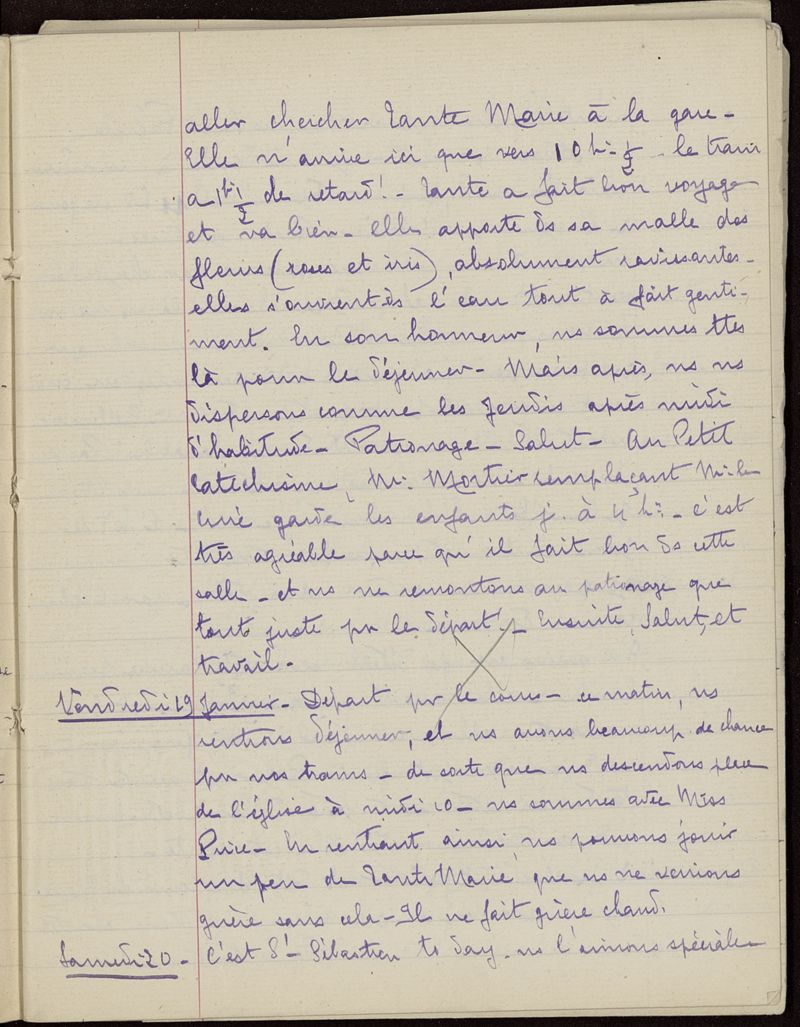 aller chercher Tante Marie à la gare -
Elle n'arrive ici que vers 10 h. 1/2 - le train
a 1h 1/2 de retard! - Tante a fait bon voyage
et va bien - Elle apporte ds sa malle des
fleurs (roses et iris), absolument ravissantes -
elles s'ouvrent ds l'eau tout à fait genti-
ment. En son honneur, ns sommes ttes
là pour le déjeuner - Mais après, ns ns
dispersons comme les Jeudis après midi
d'habitude - Patronage - Salut - Au Petit
Catéchisme, Mr Mortier remplaçant Mr le
Curé garde les enfants j. à 4 h. - C'est
très agréable parce qu'il fait bon ds cette
salle - et ns ne remontons au patronage que
tout juste pr le départ! - Ensuite, Salut, et
travail -
Vendredi 19 Janvier - Départ pr le cours - ce matin, ns
rentrons déjeuner, et ns avons beaucoup de chance
pr nos trams - de sorte que ns descendons place
de l'église à midi 10 - ns sommes avec Miss
En rentrant ainsi, ns pouvons jouir
un peu de Tante Marie que ns ne verrions
guère sans cela - Il ne fait guère chaud.
Samedi 20 - C'est St Sébastien to day - ns l'aimons spéciale